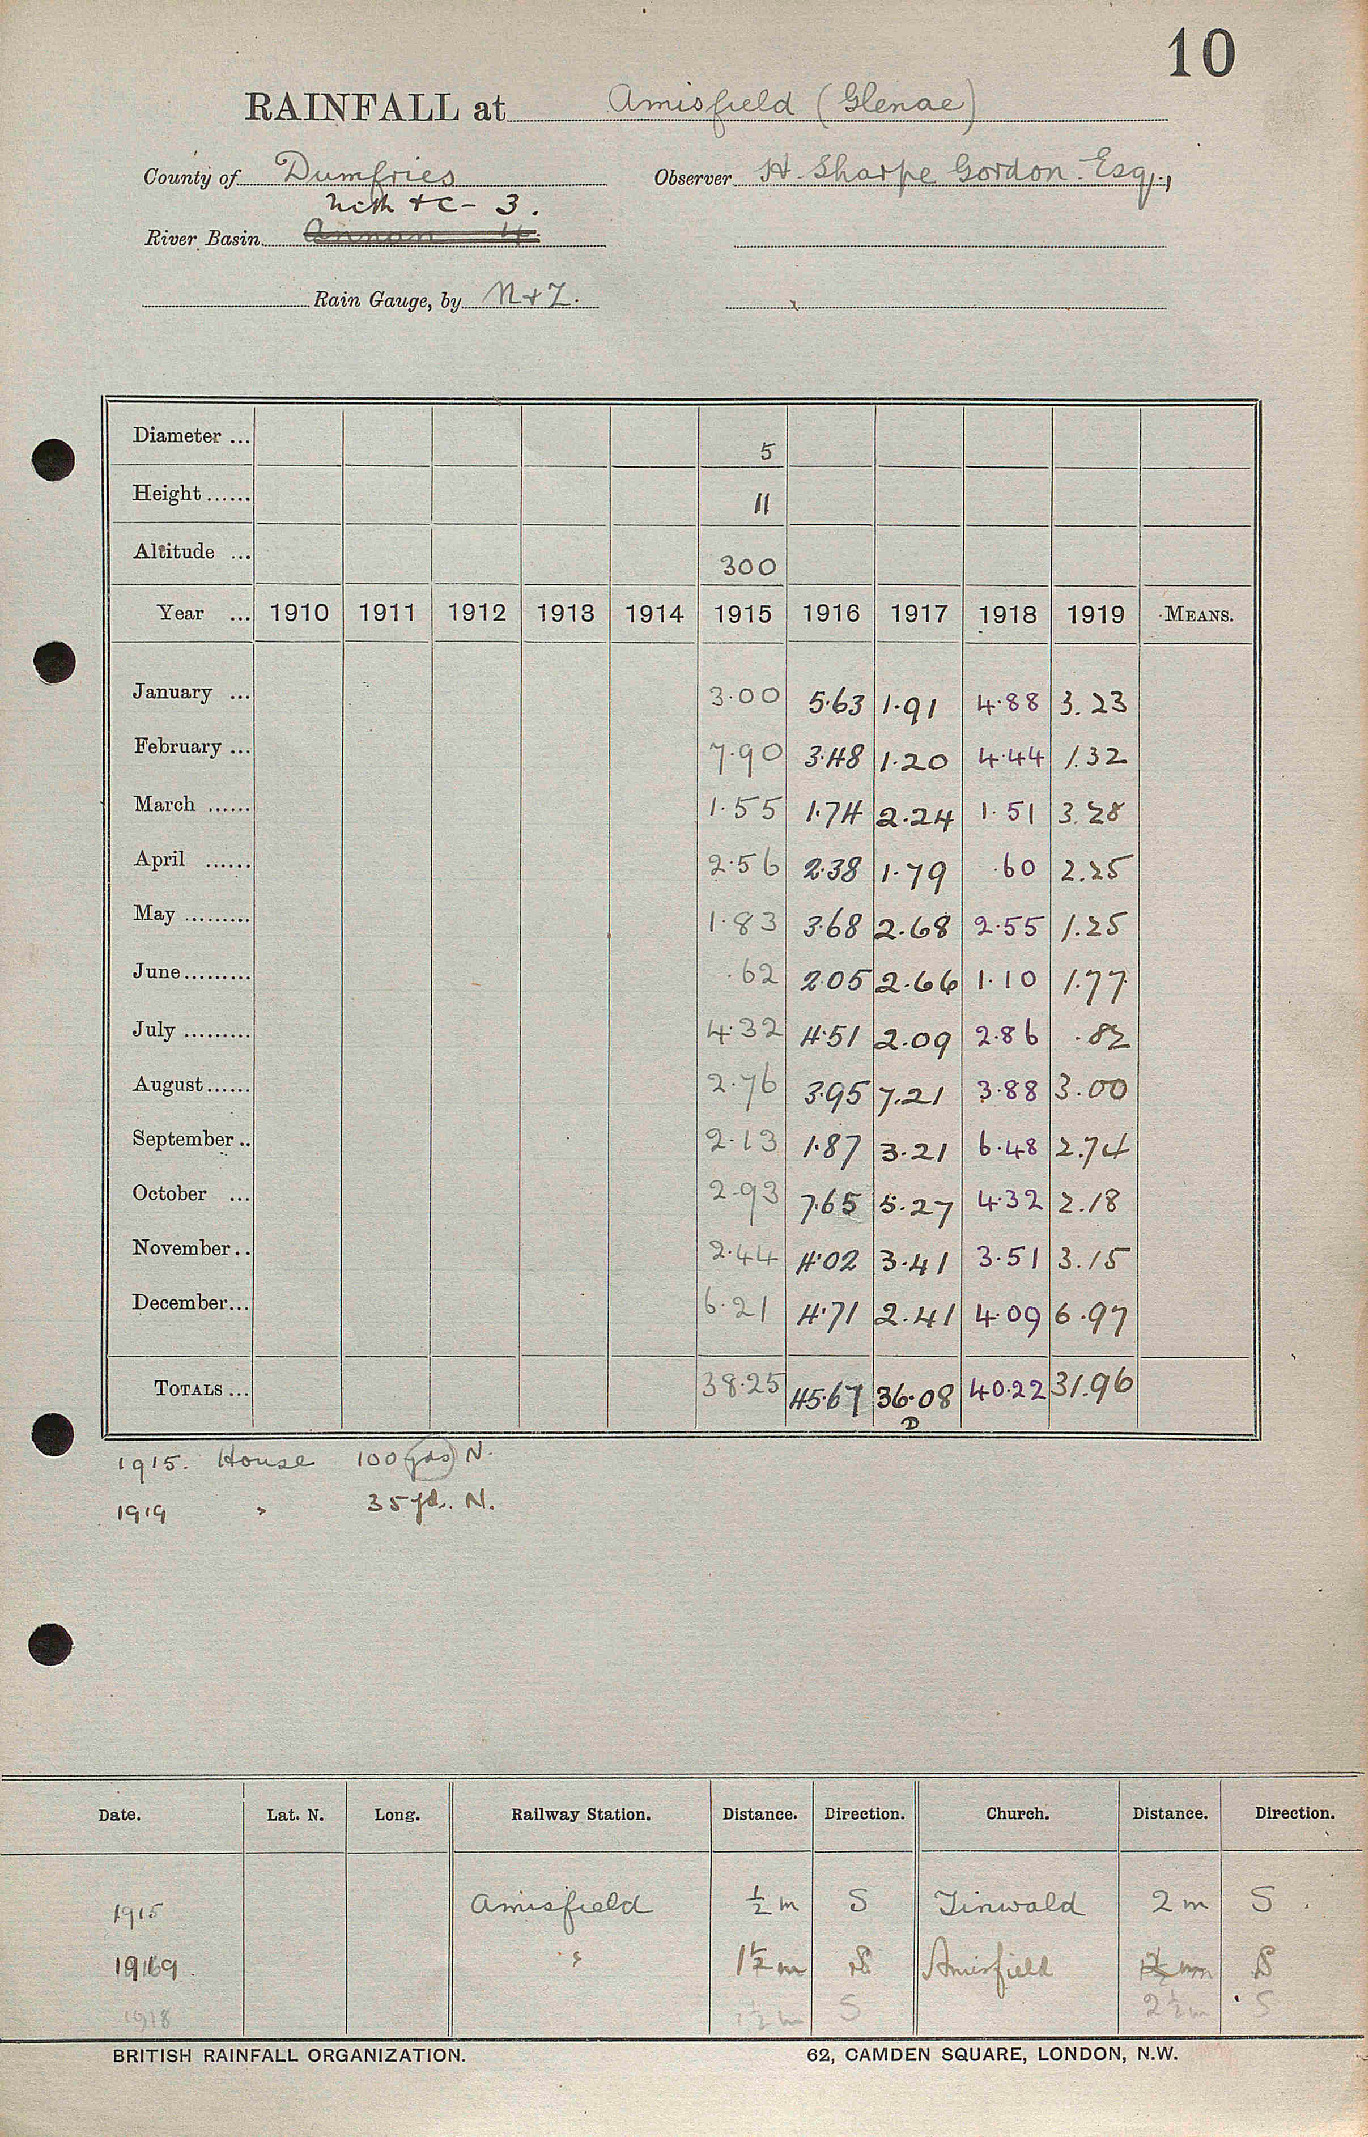 10
RAINFALL at Amisfield (Glenae)
County of Dumfries Observer H. Sharpe Gordon. Esq.,
Nith + C - 3.
River Basin Annan 4
Rain Gauge, by N + Z.
Diameter ... 5
Height ...... 11
Altitude ... 300
Year ... 1910 1911 1912 1913 1914 1915 1916 1917 1918 1919 MEANS.
January ... 3.00 5.63 1.91 4.88 3.23
February ... 7.90 3.48 1.20 4.44 1.32
March ...... 1.55 1.74 2.24 1.51 3.28
April ...... 2.56 2.38 1.79 .60 2.25
May ......... 1.83 3.68 2.68 2.55 1.25
June ......... .62 2.05 2.66 1.10 1.77
July ......... 4.32 4.51 2.09 2.86 .82
August ...... 2.76 3.95 7.21 3.88 3.00
September .. 2.13 1.87 3.21 6.48 2.74
October ... 2.93 7.65 5.27 4.32 2.18
November .. 2.44 4.02 3.41 3.51 3.15
December ... 6.21 4.71 2.41 4.09 6.97
TOTALS ... 38.25 45.67 36.08 40.22 31.96
D
1915. House 100 yds N.
1919 " 35 yd. N.
Date. Lat. N. Long. Railway Station. Distance. Direction. Church. Distance. Direction.
1915 Amisfield ½ m S Tinwald 2 m S.
1919 " 1½ m S Amisfield m S
1918 1½ m S 2½ m S
BRITISH RAINFALL ORGANIZATION. 62, CAMDEN SQUARE, LONDON, N.W.